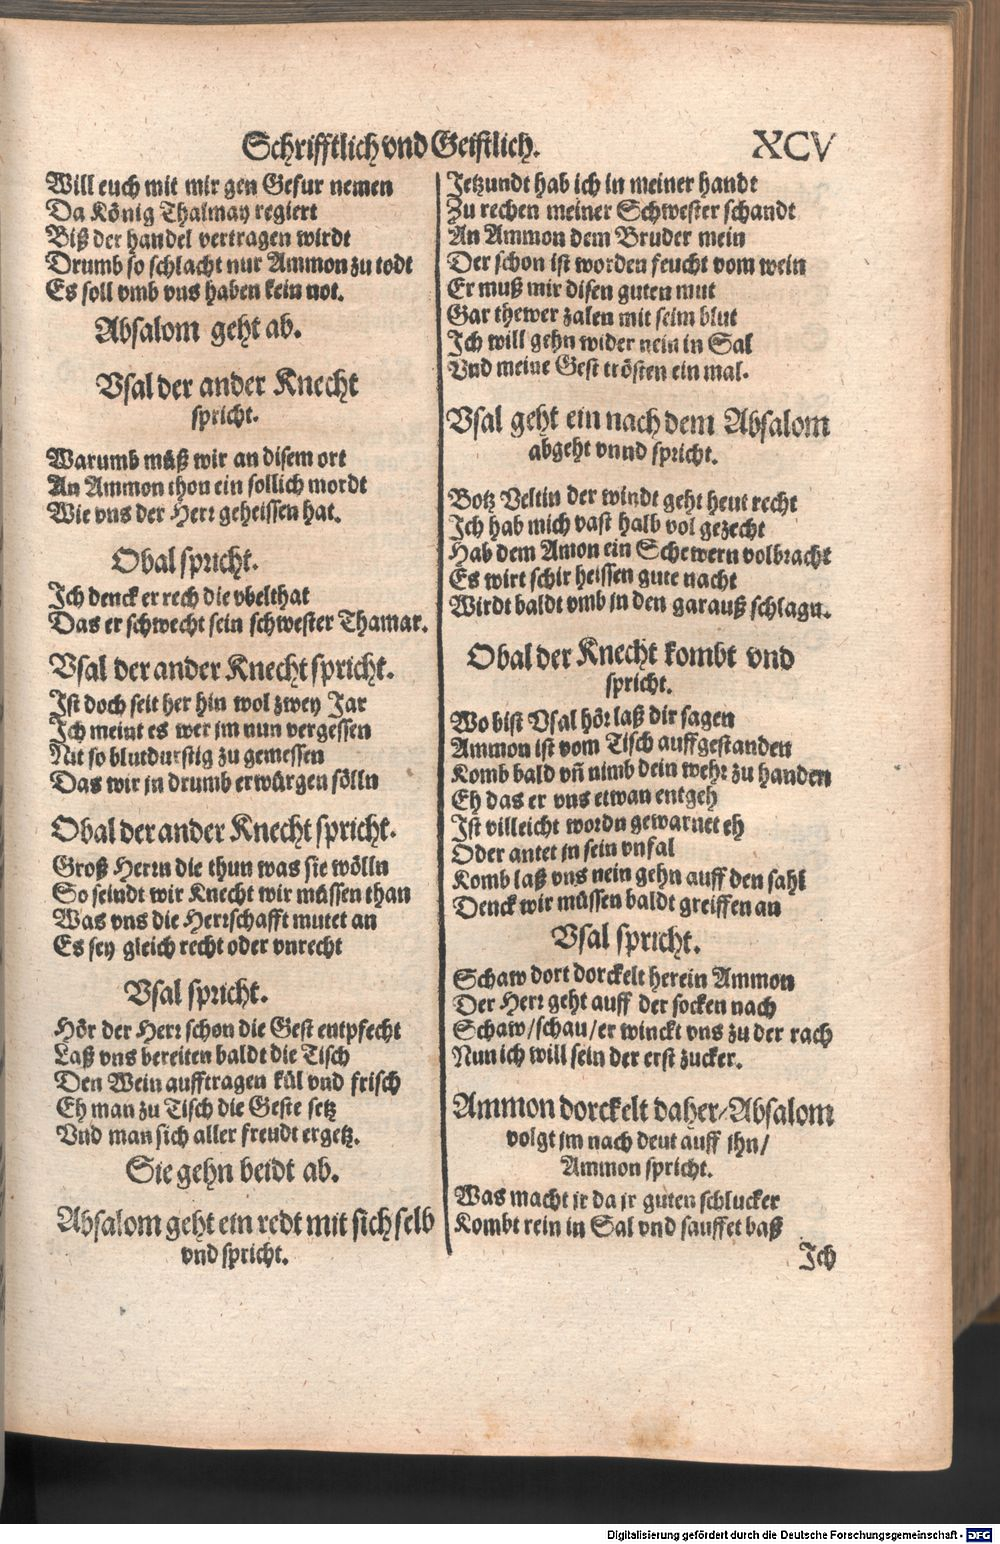 Schrifftlich vnd Geistlich. XCV
Will euch mit mir gen Gesur nemen
Da König Thalmay regiert
Biß der handel vertragen wirdt
Drumb so schlacht nur Ammon zu todt
Es soll vmb vns haben kein not.
Absalom geht ab.
Vsal der ander Knecht
spricht.
Warumb müß wir an disem ort
An Ammon thon ein sollich mordt
Wie vns der Herr geheissen hat.
Obal spricht.
Ich denck er rech die vbelthat
Das er schwecht sein schwester Thamar.
Vsal der ander Knecht spricht.
Ist doch seit her hin wol zwey Jar
Ich meint es wer jm nun vergessen
Nit so blutdurstig zu gemessen
Das wir jn drumb erwürgen sölln
Obal der ander Knecht spricht.
Groß Herrn die thun was sie wölln
So seindt wir Knecht wir müssen than
Was vns die Herrschafft mutet an
Es sey gleich recht oder vnrecht
Vsal spricht.
Hör der Herr schon die Gest entpfecht
Laß vns bereiten baldt die Tisch
Den Wein aufftragen kül vnd frisch
Eh man zu Tisch die Geste setz
Vnd man sich aller freudt ergetz.
Sie gehn beidt ab.
Absalom geht ein redt mit sich selb
vnd spricht.
Jetzundt hab ich in meiner handt
Zu rechen meiner Schwester schandt
An Ammon dem Bruder mein
Der schon ist worden feucht vom wein
Er muß mir disen guten mut
Gar thewer zalen mit seim blut
Ich will gehn wider nein in Sal
Vnd meine Gest trösten ein mal.
Vsal geht ein nach dem Absalom
abgeht vnnd spricht.
Botz Veltin der windt geht heut recht
Ich hab mich vast halb vol gezecht
Hab dem Amon ein Schewern volbracht
Es wirt schir heissen gute nacht
Wirdt baldt vmb jn den garauß schlagn.
Obal der Knecht kombt vnd
spricht.
Wo bist Vsal hör laß dir sagen
Ammon ist vom Tisch auffgestanden
Komb bald vñ nimb dein wehr zu handen
Eh das er vns etwan entgeh
Ist villeicht wordn gewarnet eh
Oder antet jn sein vnfal
Komb laß vns nein gehn auff den sahl
Denck wir müssen baldt greiffen an
Vsal spricht.
Schaw dort dorckelt herein Ammon
Der Herr geht auff der socken nach
Schaw/schau/er winckt vns zu der rach
Nun ich will sein der erst zucker.
Ammon dorckelt daher/Absalom
volgt jm nach deut auff ihn/
Ammon spricht.
Was macht jr da jr guten schlucker
Kombt rein in Sal vnd sauffet baß
Ich
Digitalisierung gefördert durch die Deutsche Forschungsgemeinschaft - DFG